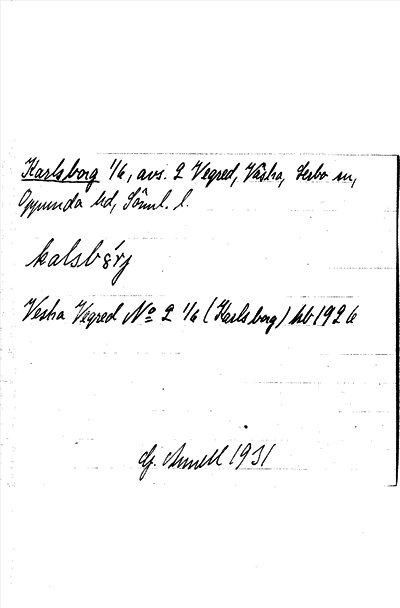 Karlsborg 1/6, avs. 2 Vegred, Västra, Lerbo sn,
Oppunda hd, Söml. l.
kalsbǫrj
Vestra Vegred No 2 1/6 (Karlsborg) hb 1926
Gj. Arnell 1931